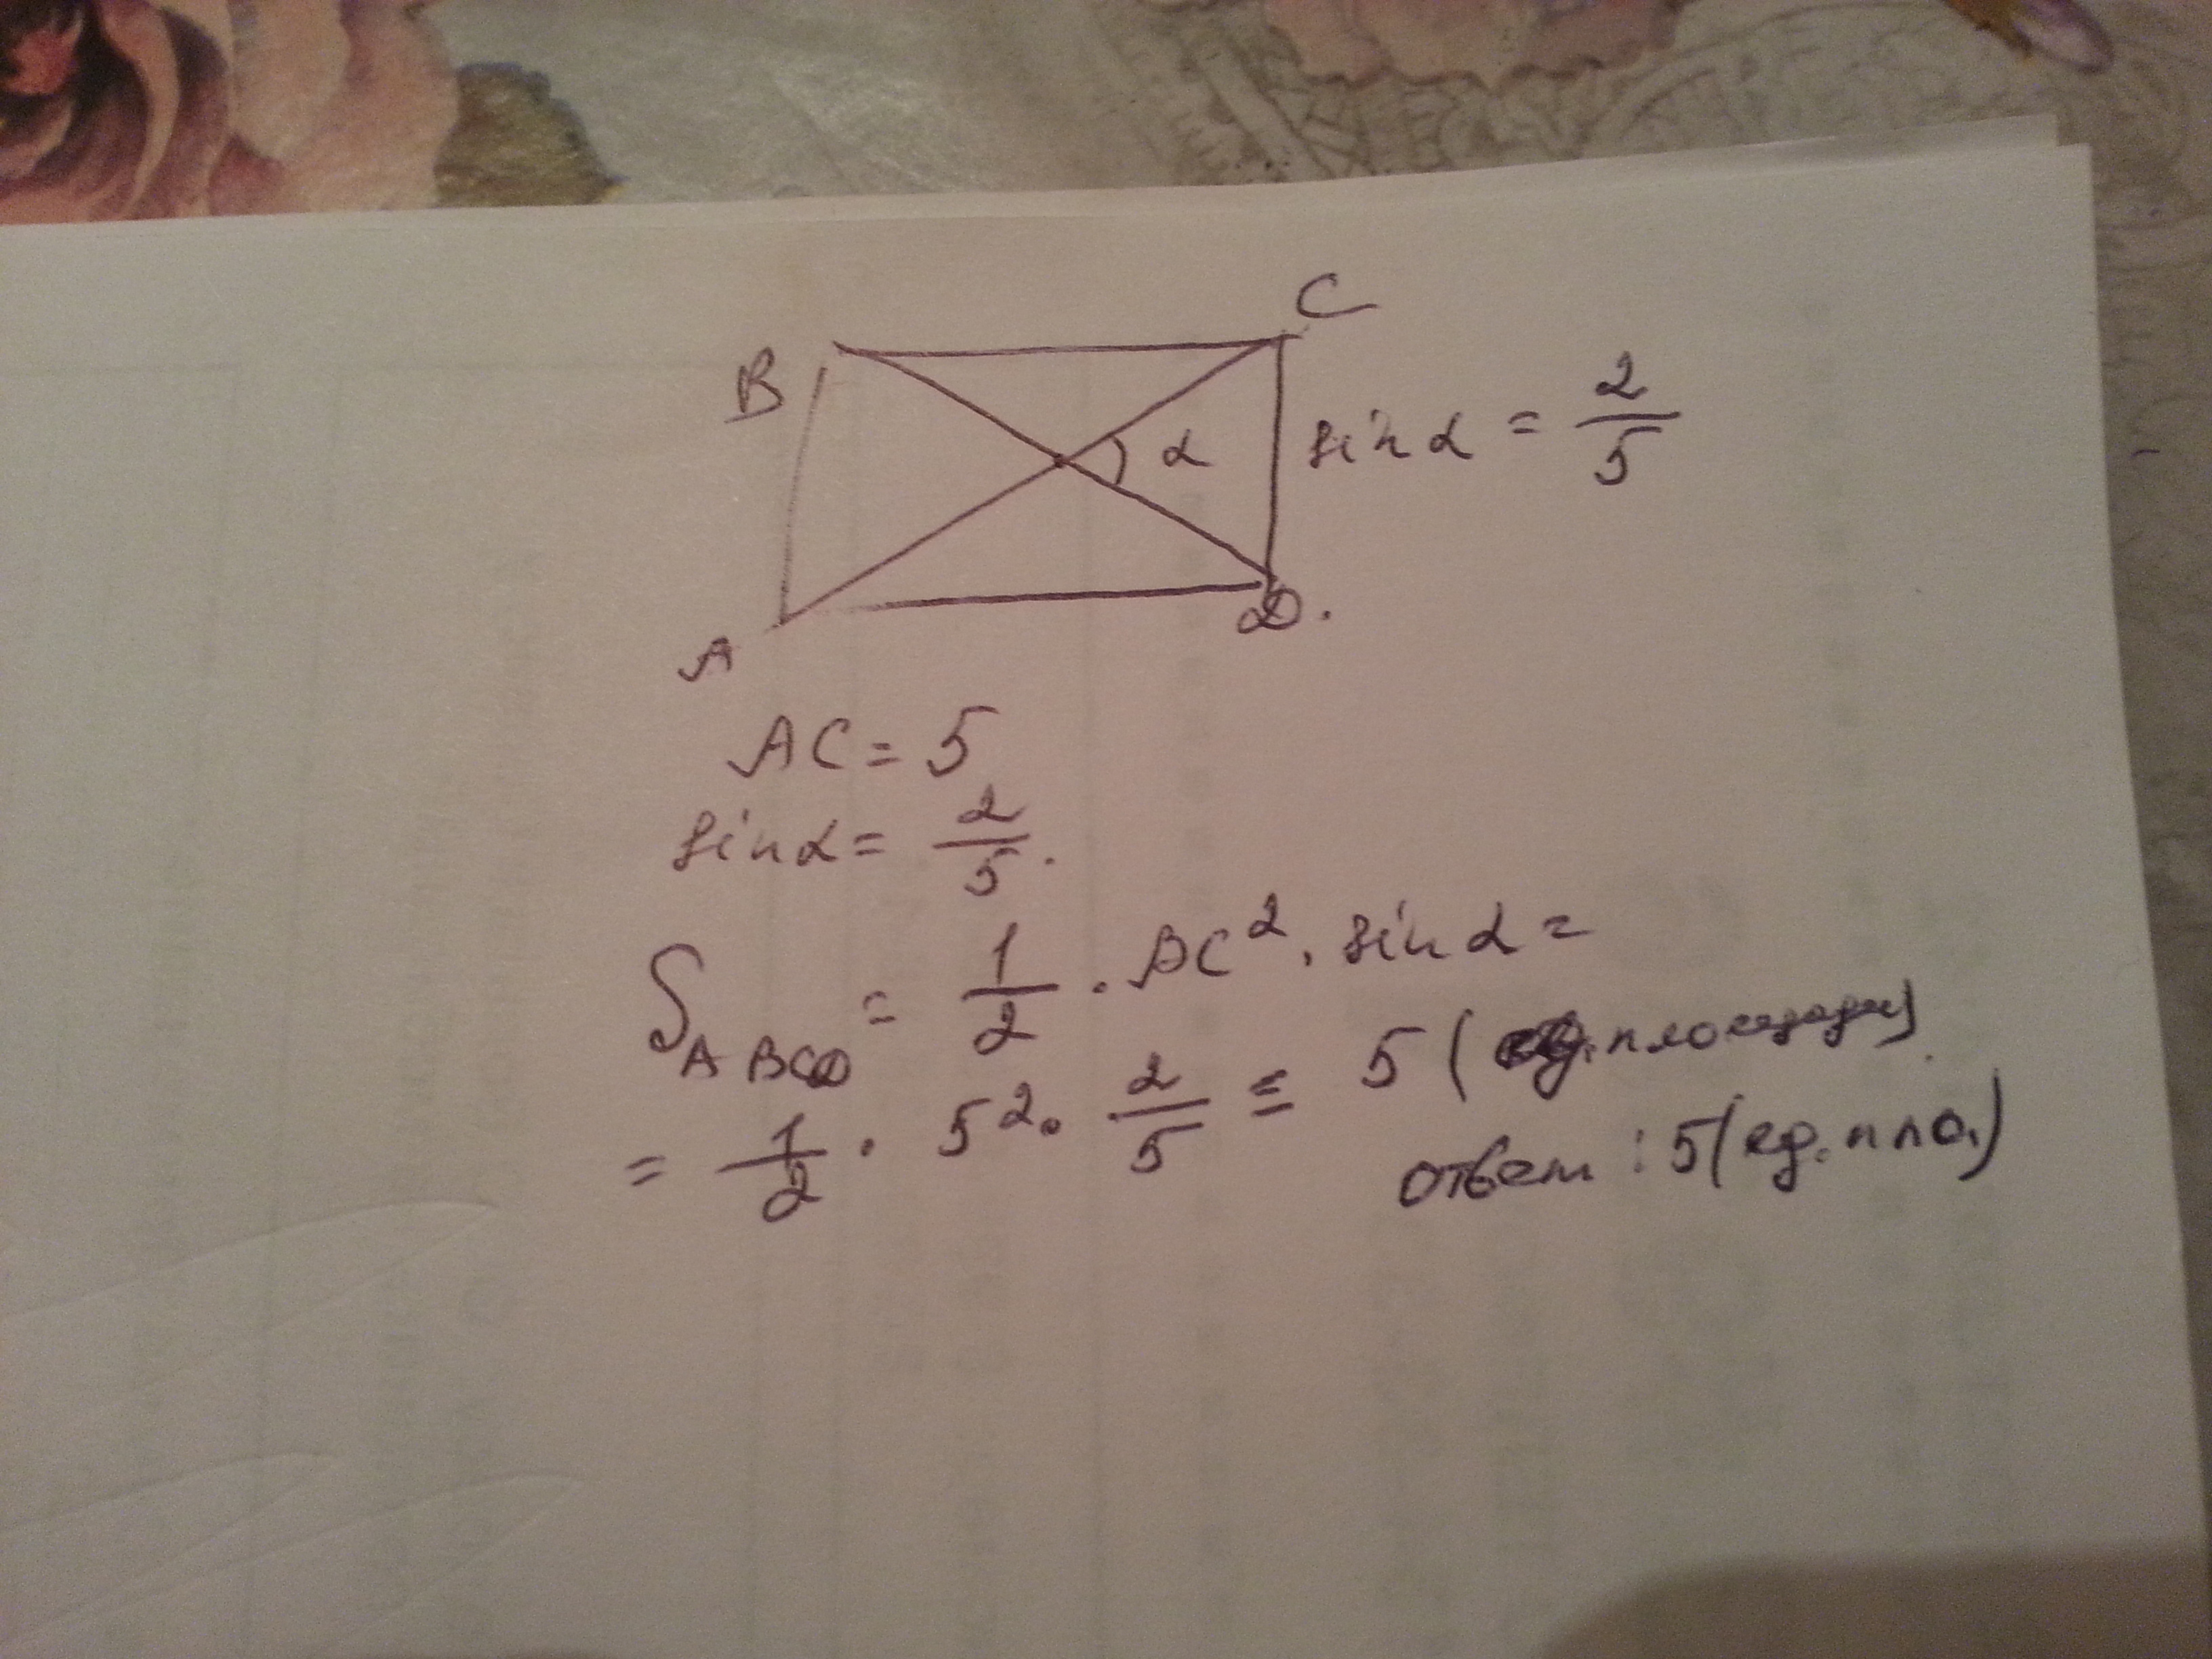 C
B
α
sin α = 2/5
A
D.
AC = 5
sin α = 2/5.
S ABCD = 1/2 · AC² · sin α =
= 1/2 · 5² · 2/5 = 5 (ед. площади)
ответ : 5 (ед. пло.)